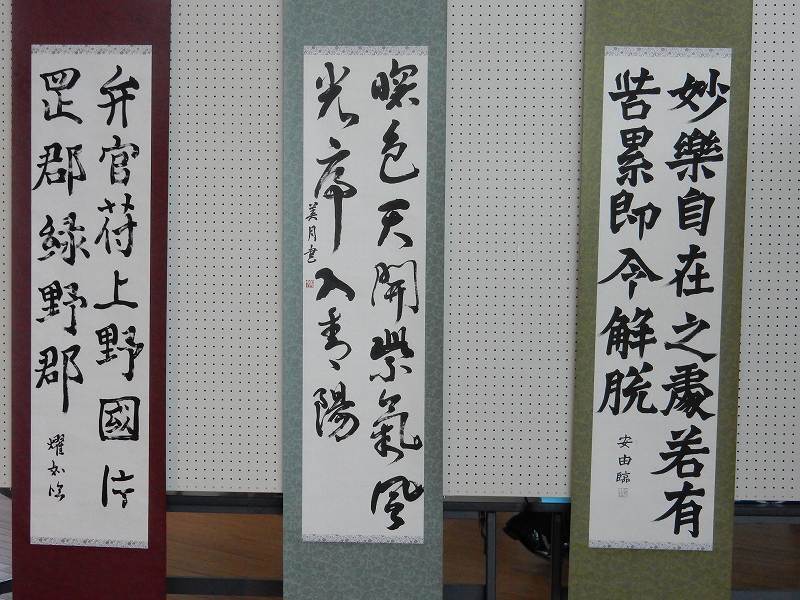 妙樂自在之處若有
苦累即令解脱
安由臨
色天開紫氣風
光序入青陽
美月書
弁官苻上野國片
罡郡緑野郡
耀如臨